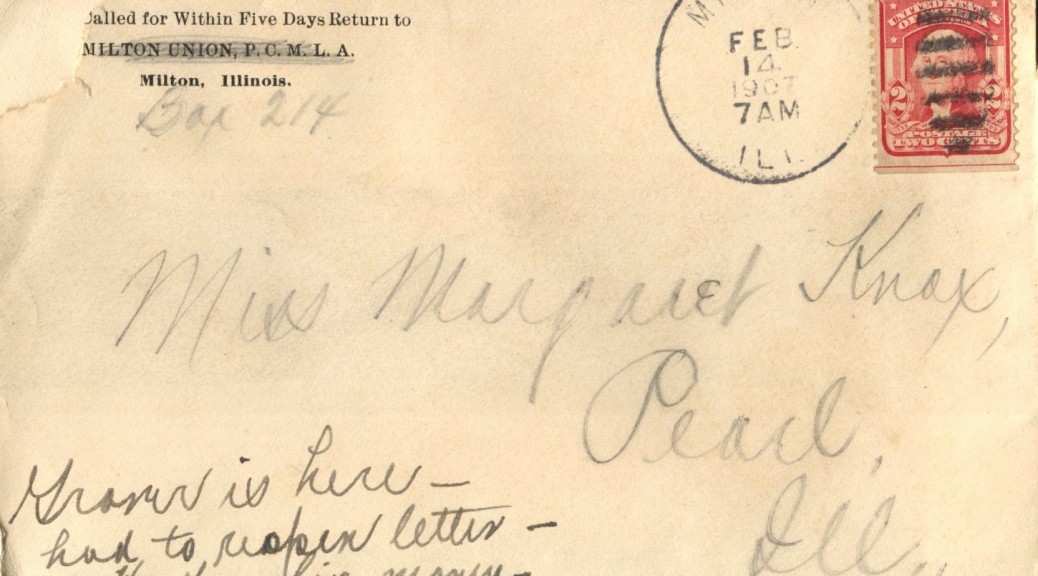 Called for Within Five Days Return to
MILTON UNION, P. C. M. L. A.
Milton, Illinois.
Box 214
FEB
14
1907
7AM
ILL.
UNITED STATES
OF AMERICA
2 2
POSTAGE
TWO CENTS
Miss Margaret Knox,
Pearl,
Ill.,
Grover is here –
had to reopen letter –